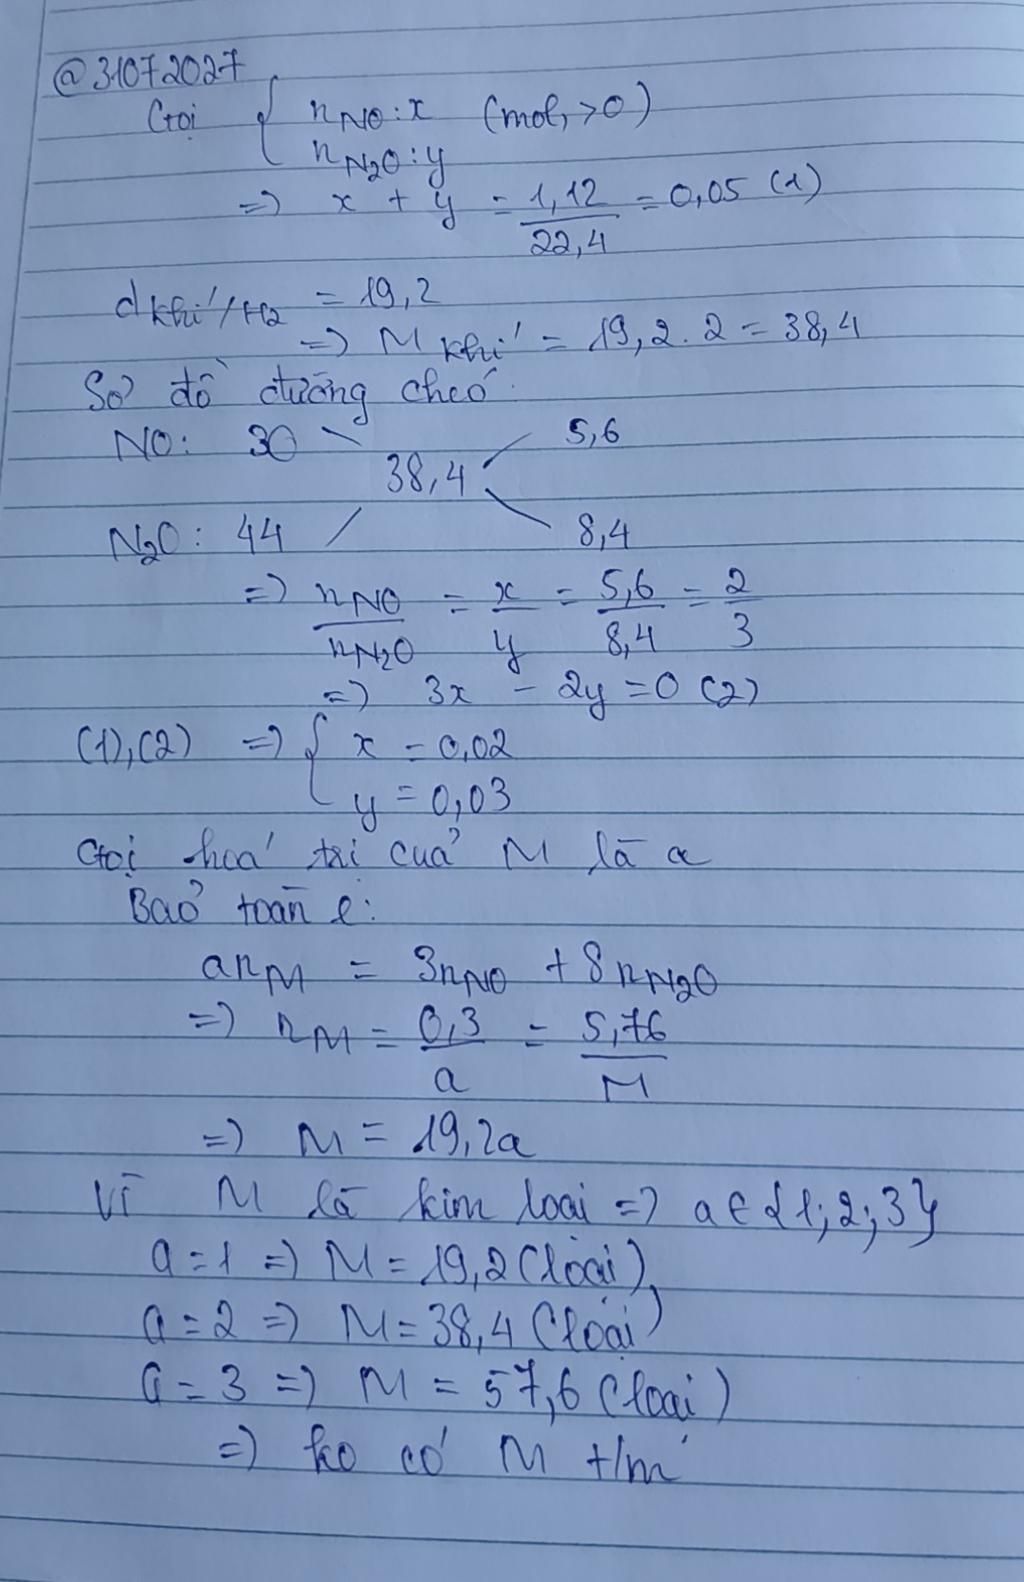 @31072027
Gọi { nNO: x (mol, >0)
nN2O: y
=> x + y = 1,12 / 22,4 = 0,05 (1)
dkhí/H2 = 19,2
=> M khí = 19,2.2 = 38,4
Sơ đồ đường chéo:
NO: 30 5,6
38,4
N2O: 44 8,4
=> nNO / nN2O = x / y = 5,6 / 8,4 = 2 / 3
=> 3x - 2y = 0 (2)
(1),(2) => { x = 0,02
y = 0,03
Gọi hoá trị của M là a
Bảo toàn e:
anM = 3nNO + 8nN2O
=> nM = 0,3 / a = 5,76 / M
=> M = 19,2a
Vì M là kim loại => a ∈ {1; 2; 3}
a = 1 => M = 19,2 (loại)
a = 2 => M = 38,4 (loại)
a = 3 => M = 57,6 (loại)
=> ko có M t/m